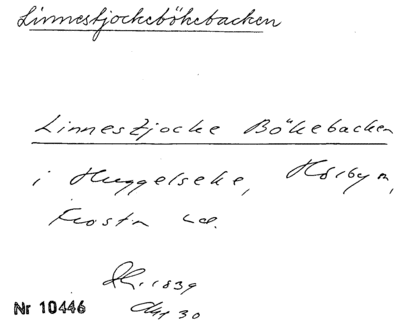 Linnestjockebökebacken
Linnestjocke Bökebacken
i Huggelseke, Hörby sn,
Frosta hd.
1839
30
Nr 10446